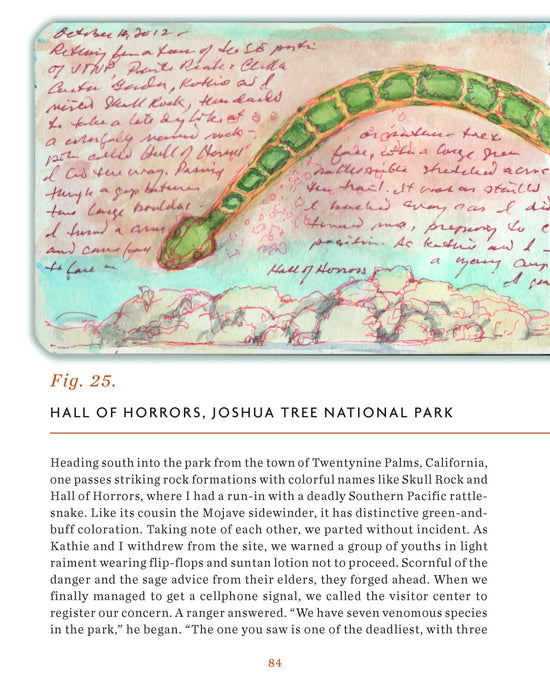 October 14, 2012 –
of JTNP
Gordon, Kathie and I
Skull Rock,
to take a late day hike at
a colorfully named rock
called Hall of Horrors
Passing
through a gap between
two large boulders
I turned a corner
and came face
to face –
face, with a large green
rattlesnake stretched across
the trail. It was as startled
I backed away as I did
Hall of Horrors
a young couple
Fig. 25.
HALL OF HORRORS, JOSHUA TREE NATIONAL PARK
Heading south into the park from the town of Twentynine Palms, California,
one passes striking rock formations with colorful names like Skull Rock and
Hall of Horrors, where I had a run-in with a deadly Southern Pacific rattle-
snake. Like its cousin the Mojave sidewinder, it has distinctive green-and-
buff coloration. Taking note of each other, we parted without incident. As
Kathie and I withdrew from the site, we warned a group of youths in light
raiment wearing flip-flops and suntan lotion not to proceed. Scornful of the
danger and the sage advice from their elders, they forged ahead. When we
finally managed to get a cellphone signal, we called the visitor center to
register our concern. A ranger answered. “We have seven venomous species
in the park,” he began. “The one you saw is one of the deadliest, with three
84